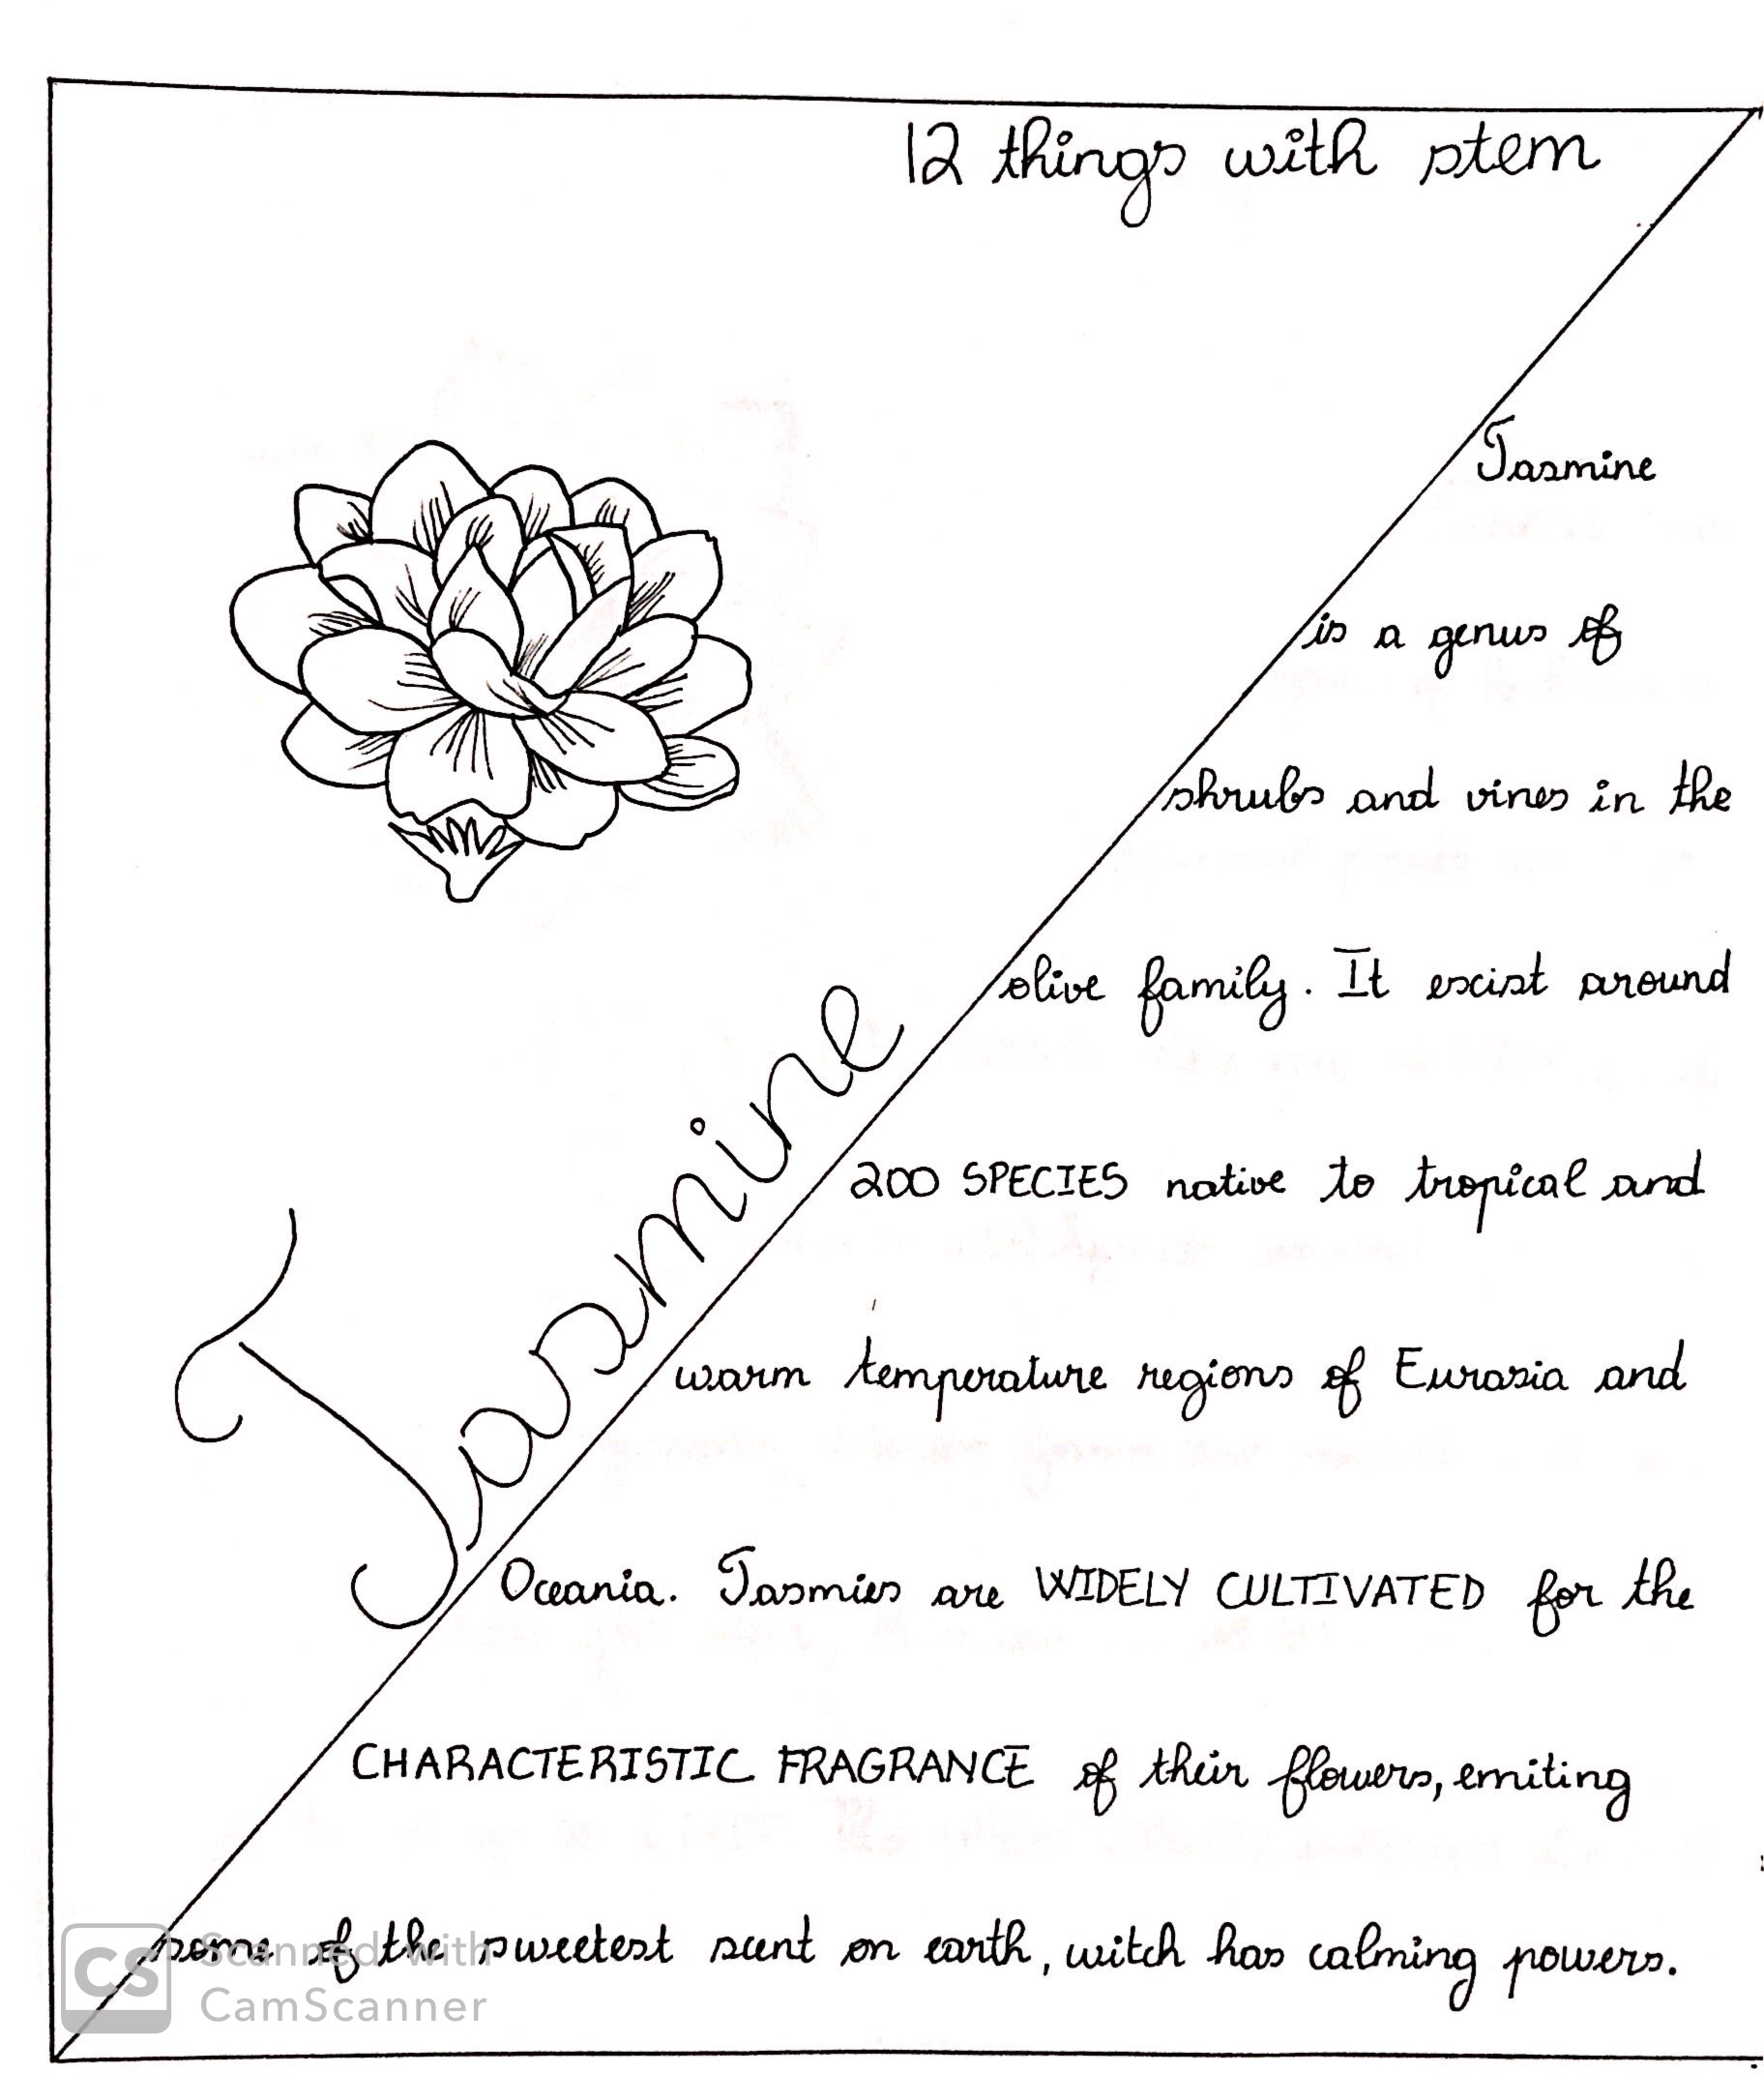 12 things with stem
Jasmine
is a genus of
shrubs and vines in the
olive family. It excist around
Jasmine
200 SPECIES native to tropical and
warm temperature regions of Eurasia and
Oceania. Jasmies are WIDELY CULTIVATED for the
CHARACTERISTIC FRAGRANCE of their flowers, emiting
some of the sweetest scent on earth, witch has calming powers.
CS Scanned with
CamScanner